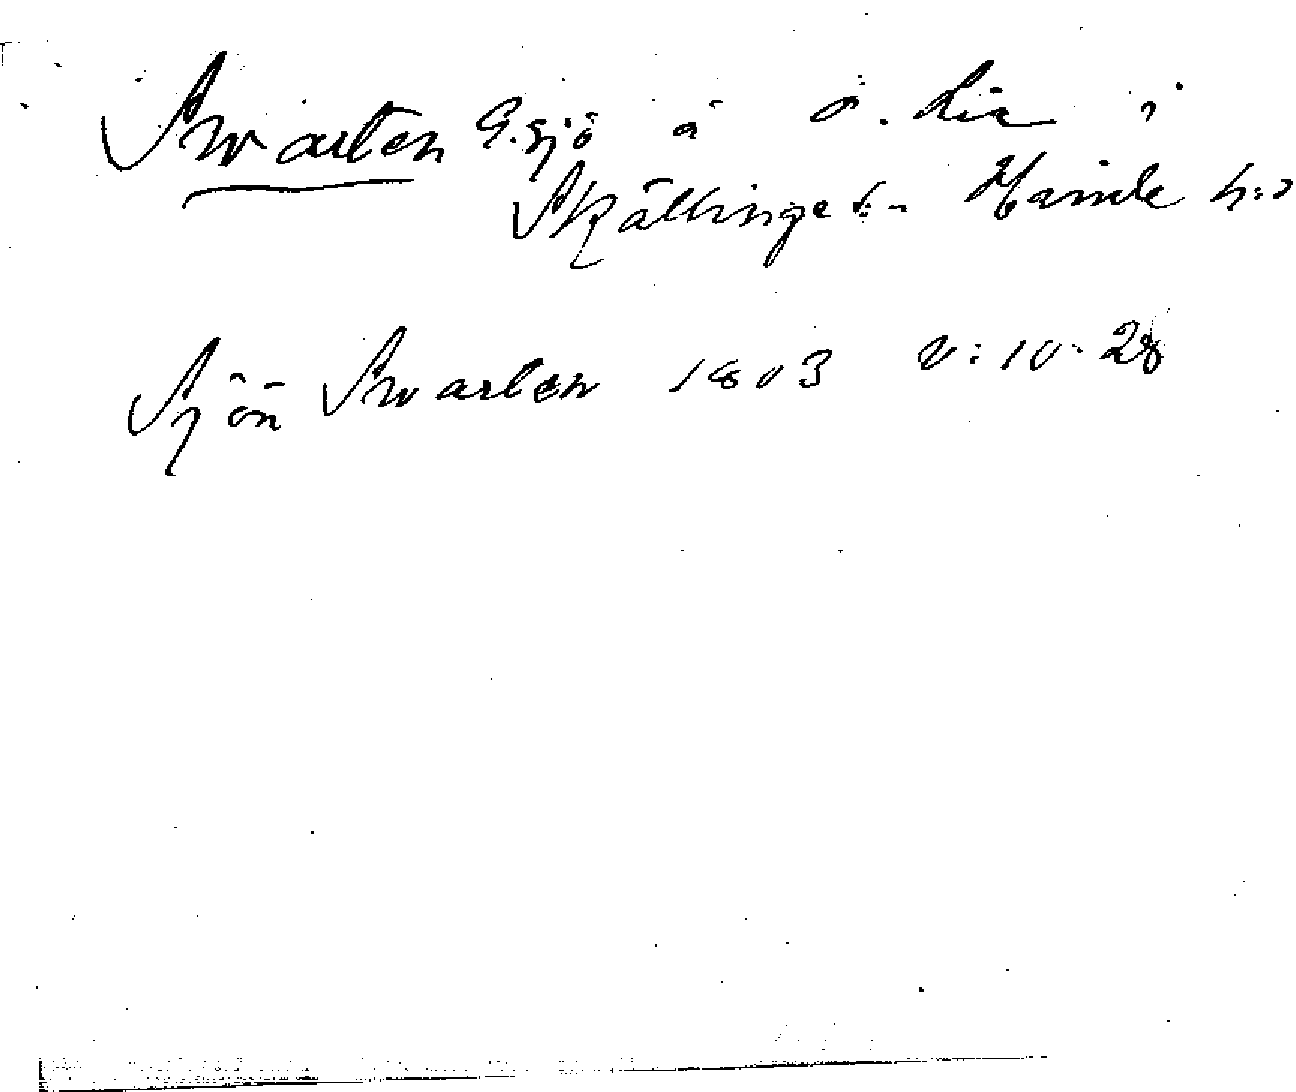 Swarten G. sjö å Ö. Lia i
Skällinge s:n Himle h:d
Sjön Swarten 1803 v: 10: 28